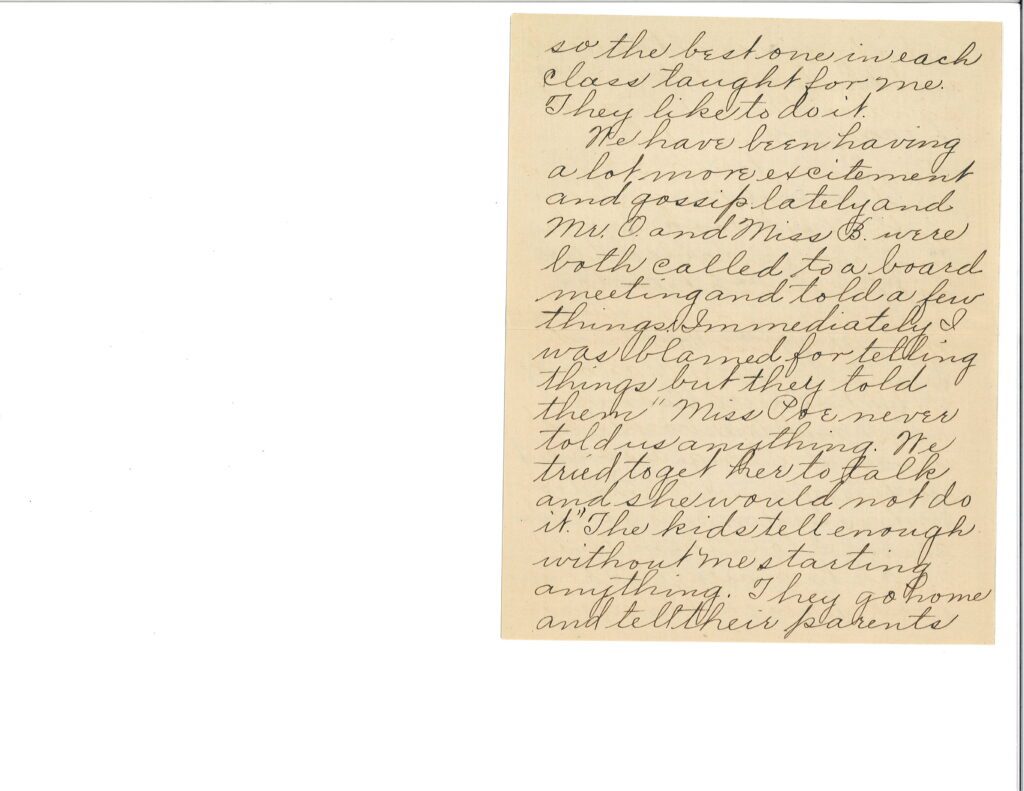 so the best one in each
class taught for me.
They like to do it.
We have been having
a lot more excitement
and gossip lately and
Mr. O. and Miss B. were
both called to a board
meeting and told a few
things. Immediately I
was blamed for telling
things but they told
them "Miss Poe never
told us anything. We
tried to get her to talk
and she would not do
it." The kids tell enough
without me starting
anything. They go home
and tell their parents